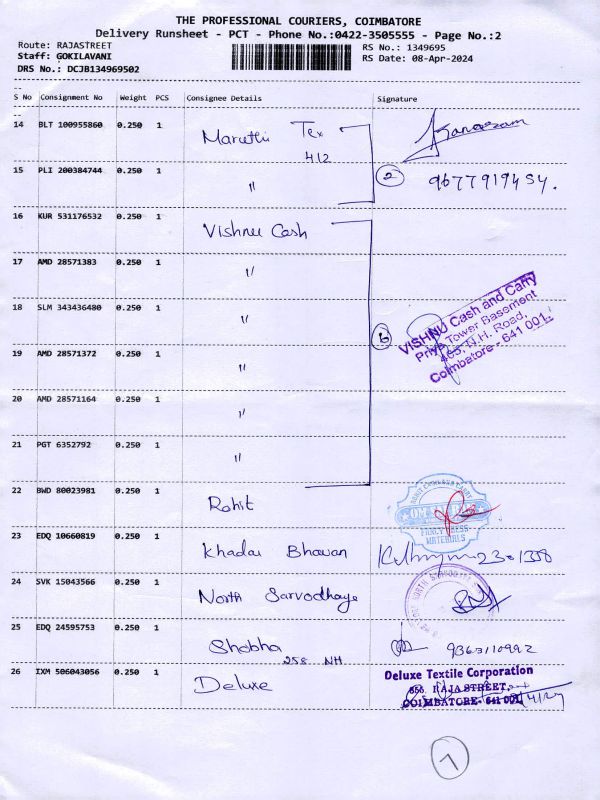 THE PROFESSIONAL COURIERS, COIMBATORE
Delivery Runsheet - PCT - Phone No.:0422-3505555 - Page No.:2
Route: RAJASTREET
RS No.: 1349695
Staff: GOKILAVANI
RS Date: 08-Apr-2024
DRS No.: DCJB134969502
S No Consignment No Weight PCS Consignee Details Signature
14 BLT 100955860 0.250 1 Maruthi Tex
412
15 PLI 200384744 0.250 1 " 2 9677919454.
16 KUR 531176532 0.250 1 Vishnu Cash
17 AMD 28571383 0.250 1 "
18 SLM 343436480 0.250 1 " 6
VISHNU Cash and Carry
Priya Tower Basement
463, N.H. Road,
Coimbatore - 641 001.
19 AMD 28571372 0.250 1 "
20 AMD 28571164 0.250 1 "
21 PGT 6352792 0.250 1 "
22 BWD 80023981 0.250 1 Rohit
FANCY DRESS
MATERIALS
23 EDQ 10660819 0.250 1 Khadai Bhavan
24 SVK 15043566 0.250 1 North Sarvodhaya
25 EDQ 24595753 0.250 1 Shobha 9363110992
258 NH
26 IXM 506043056 0.250 1 Deluxe
Deluxe Textile Corporation
RAJA STREET,
COIMBATORE - 641 001.
7